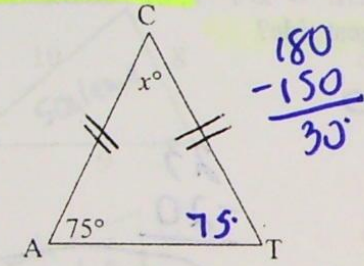 C
180
x°
-150
30°
75° 75°
A T